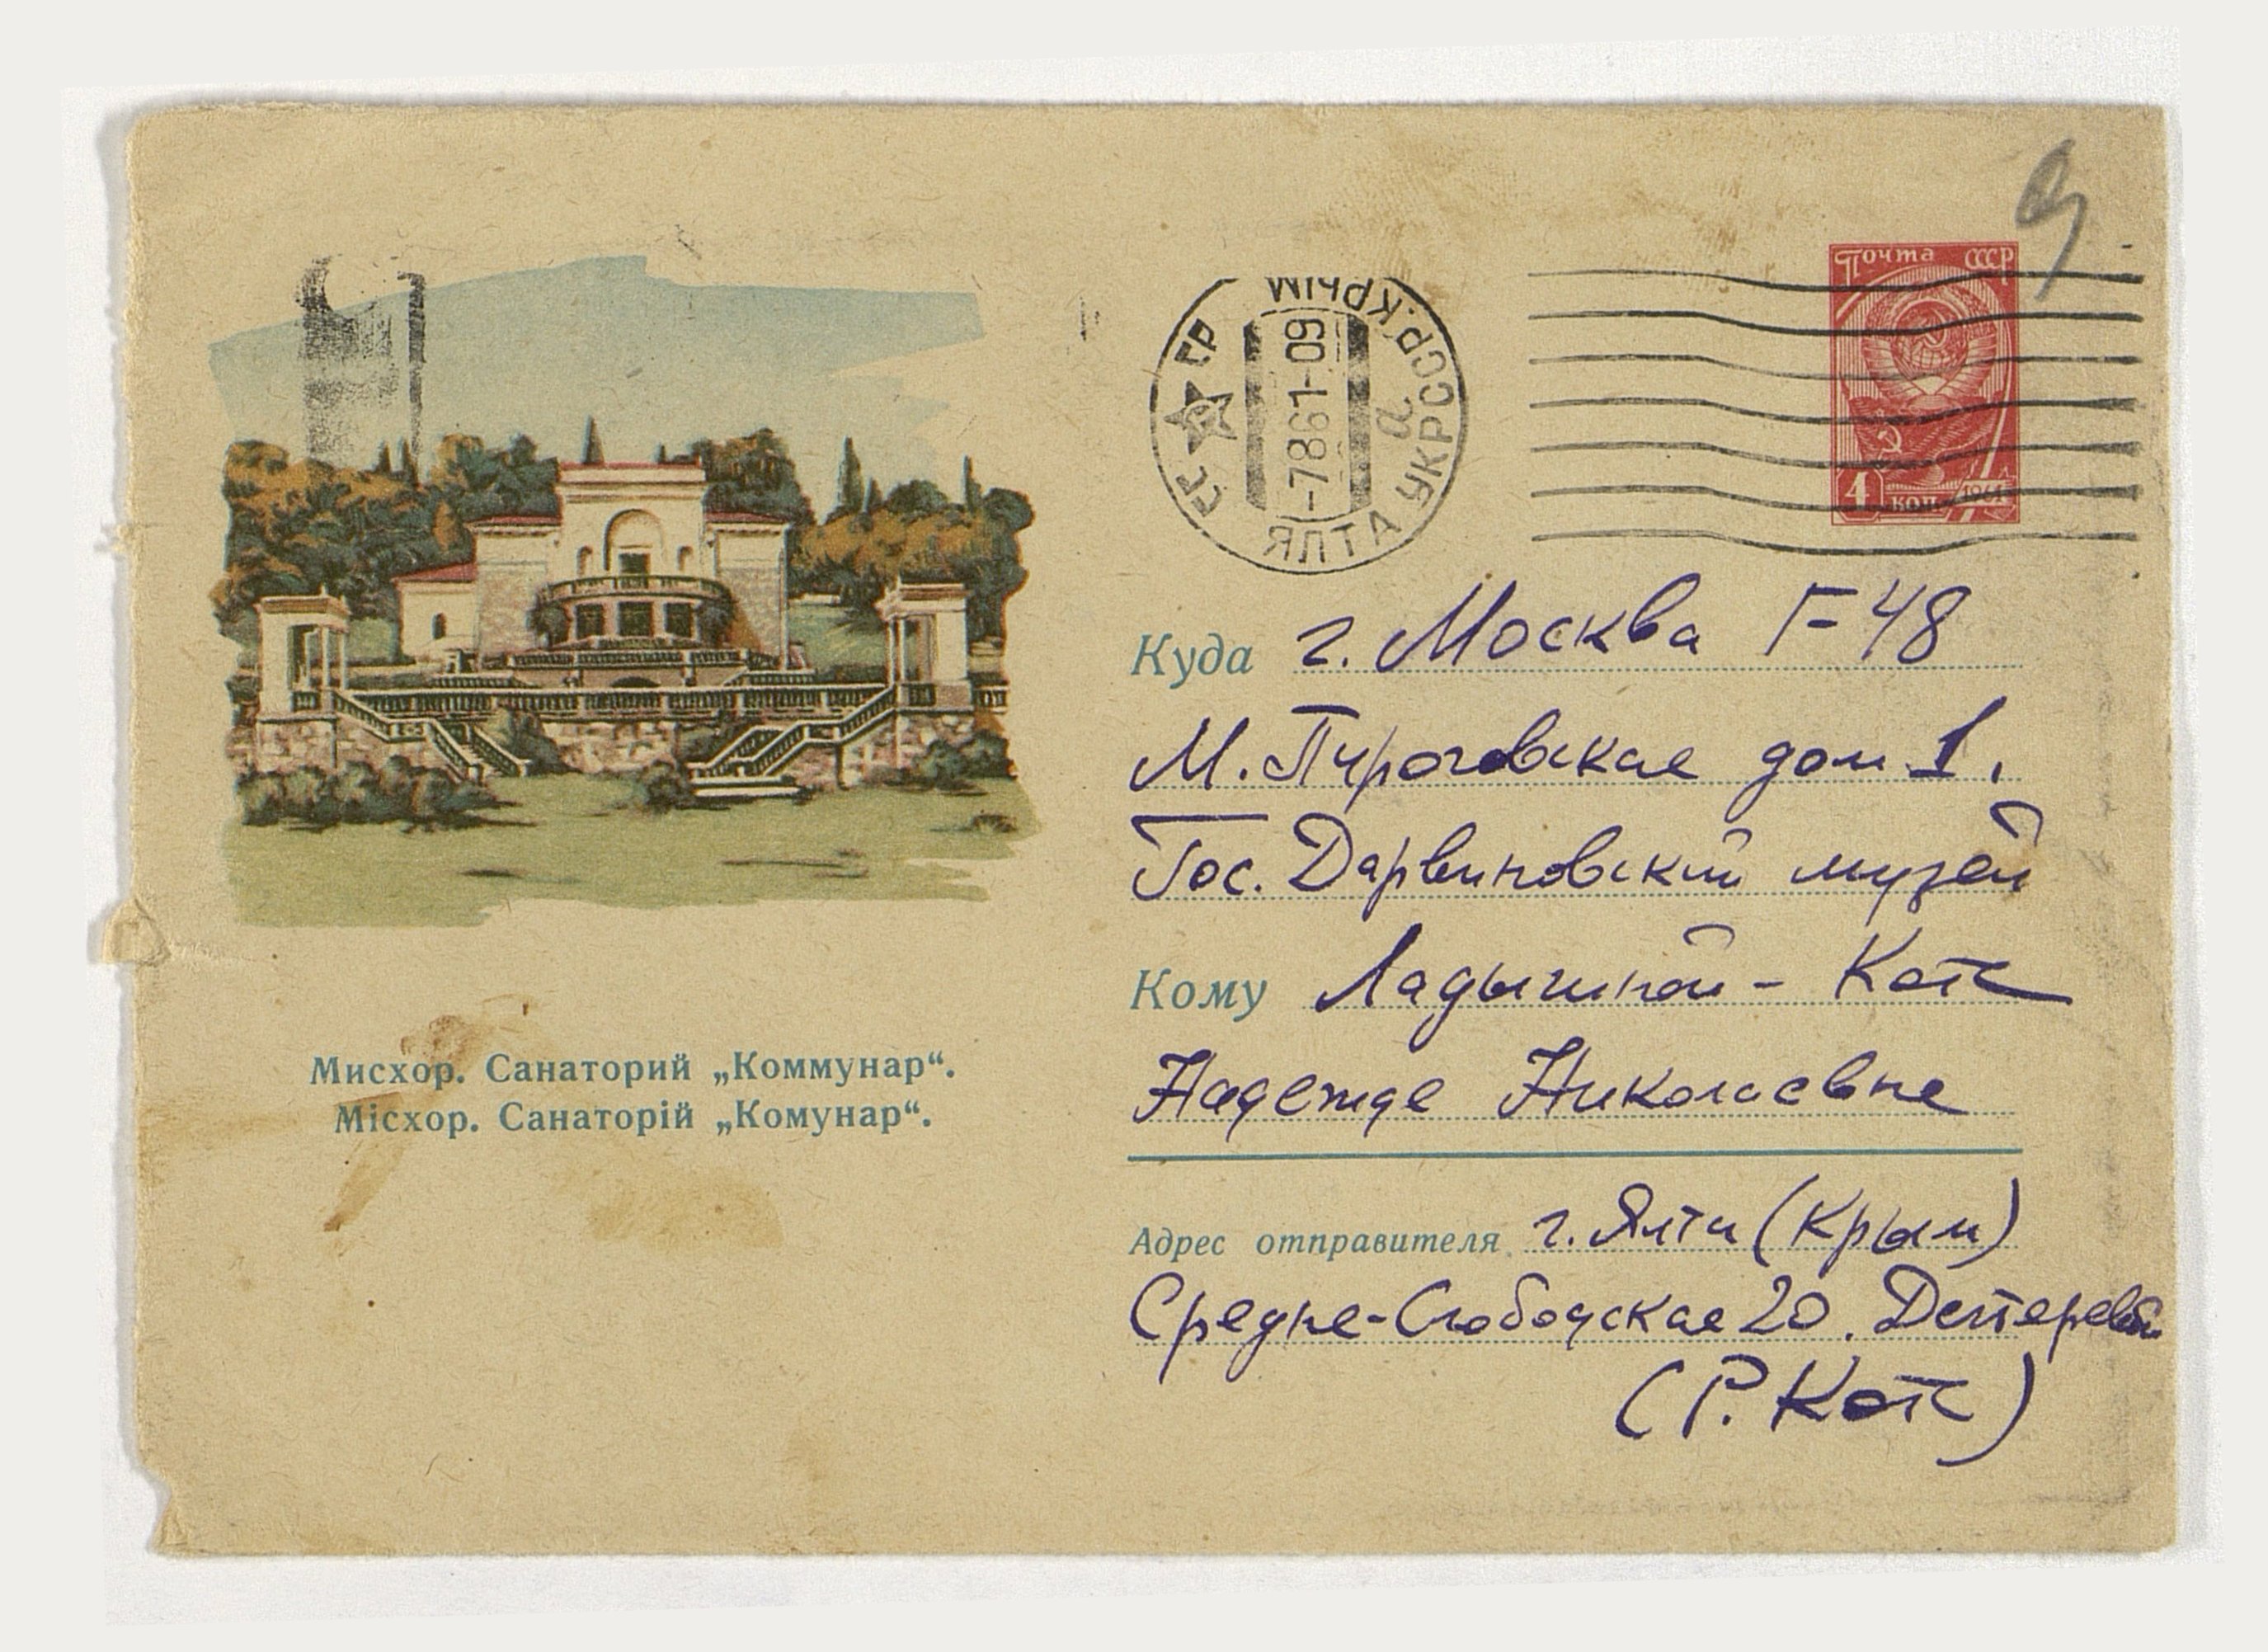 Почта СССР
4 коп. 1961
СССР
ЯЛТА УКРССР.КРЫМ
-7861-09
а
Куда г. Москва Г-48
М. Пироговская дом 1.
Гос. Дарвиновский музей
Кому Ладыгиной - Котс
Надежде Николаевне
Мисхор. Санаторий „Коммунар“.
Місхор. Санаторій „Комунар“.
Адрес отправителя г. Ялта (Крым)
Средне-Слободская 20.
(Р. Котс)